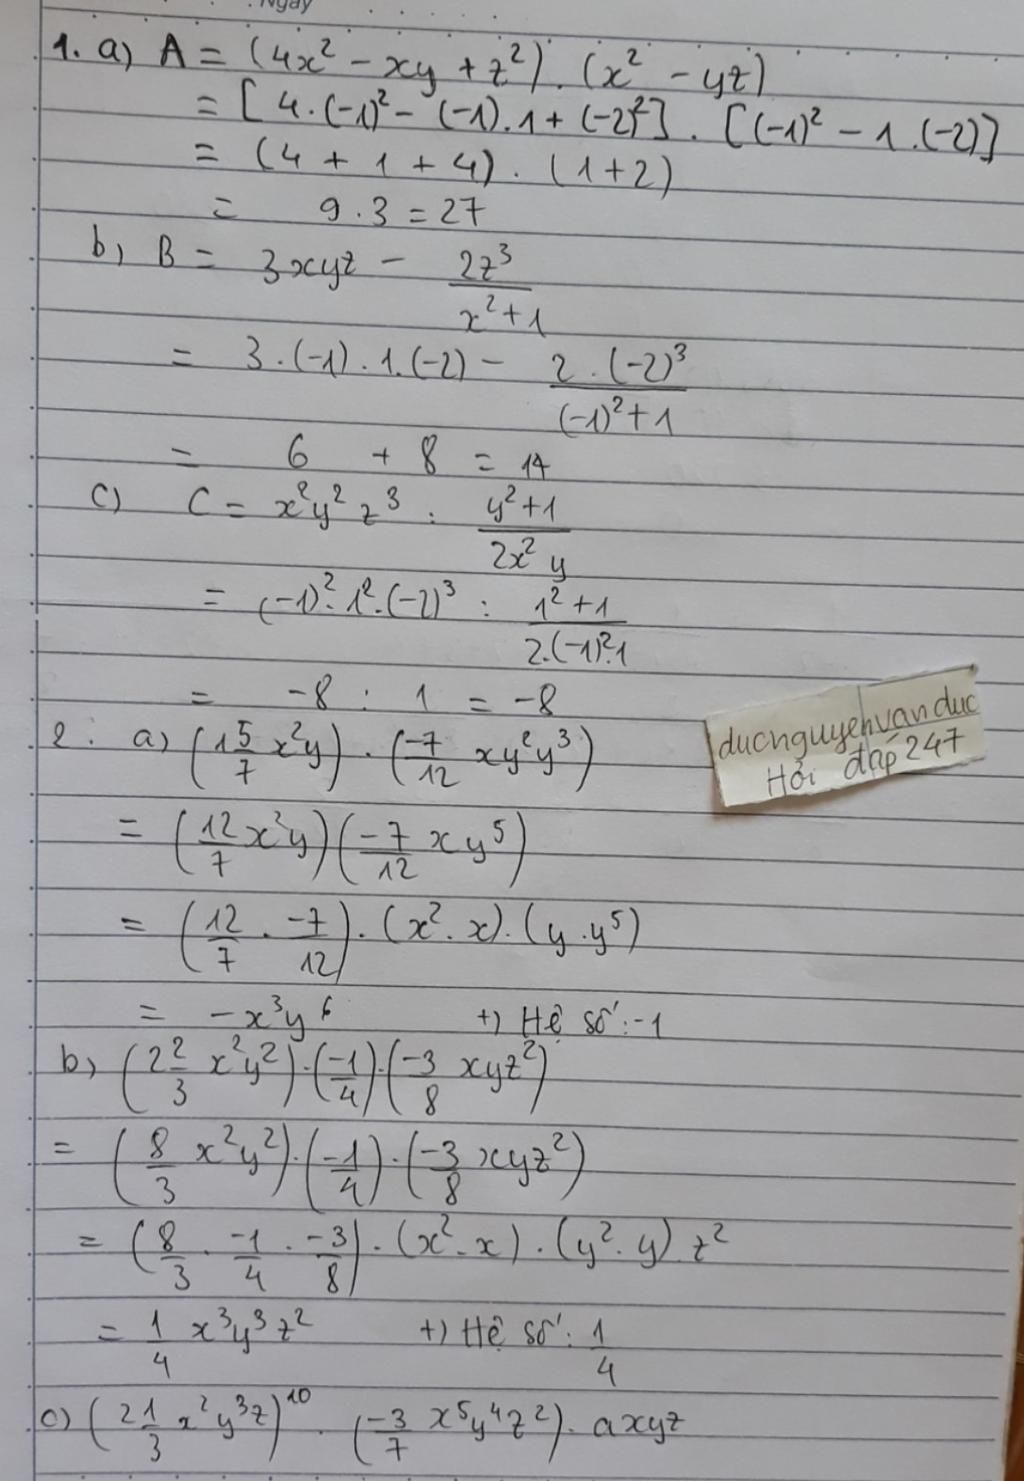 Ngày
1. a) A = (4x² - xy + z²) . (x² - yz)
= [4.(-1)² - (-1).1 + (-2)²] . [(-1)² - 1.(-2)]
= (4 + 1 + 4) . (1+2)
= 9.3 = 27
b) B = 3xyz - \frac{2z³}{x²+1}
= 3.(-1).1.(-2) - \frac{2.(-2)³}{(-1)²+1}
= 6 + 8 = 14
c) C = x²y²z³ : \frac{y²+1}{2x²y}
= (-1)².1².(-2)³ : \frac{1²+1}{2.(-1)².1}
= -8 : 1 = -8
2. a) (1\frac{5}{7} x²y) . (\frac{-7}{12} xy²y³)
ducnguyenvanduc
Hỏi đáp 247
= (\frac{12}{7} x²y)(\frac{-7}{12} xy⁵)
= (\frac{12}{7} . \frac{-7}{12}) . (x².x) . (y.y⁵)
= -x³y⁶ +) Hệ số: -1
b) (2\frac{2}{3} x²y²) . (\frac{-1}{4}) . (\frac{-3}{8} xyz²)
= (\frac{8}{3} x²y²) . (\frac{-1}{4}) . (\frac{-3}{8} xyz²)
= (\frac{8}{3} . \frac{-1}{4} . \frac{-3}{8}) . (x².x) . (y².y) z²
= \frac{1}{4} x³y³z² +) Hệ số: \frac{1}{4}
c) (2\frac{1}{3} x²y³z)¹⁰ . (\frac{-3}{7} x⁵y⁴z²) . axyz